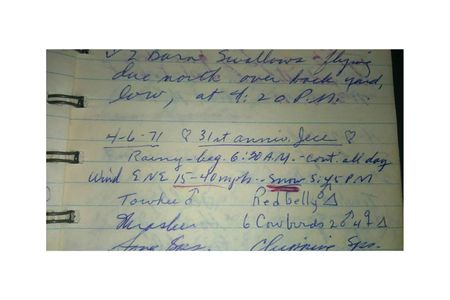 ✓ 2 Barn Swallows flying
due north over back yard,
low, at 4:20 P.M.
4-6-71 ♡ 31st anniv. Jece ♡
Rainy - beg. 6:30 A.M. - cont. all day
Wind E N E 15-40 mph. - Snow 5:45 P M
Towhee ♂ Redbelly ♂ △
Thrasher 6 Cowbirds 2 ♂ 4 ♀ △
Song Sps. Chipping Sps.